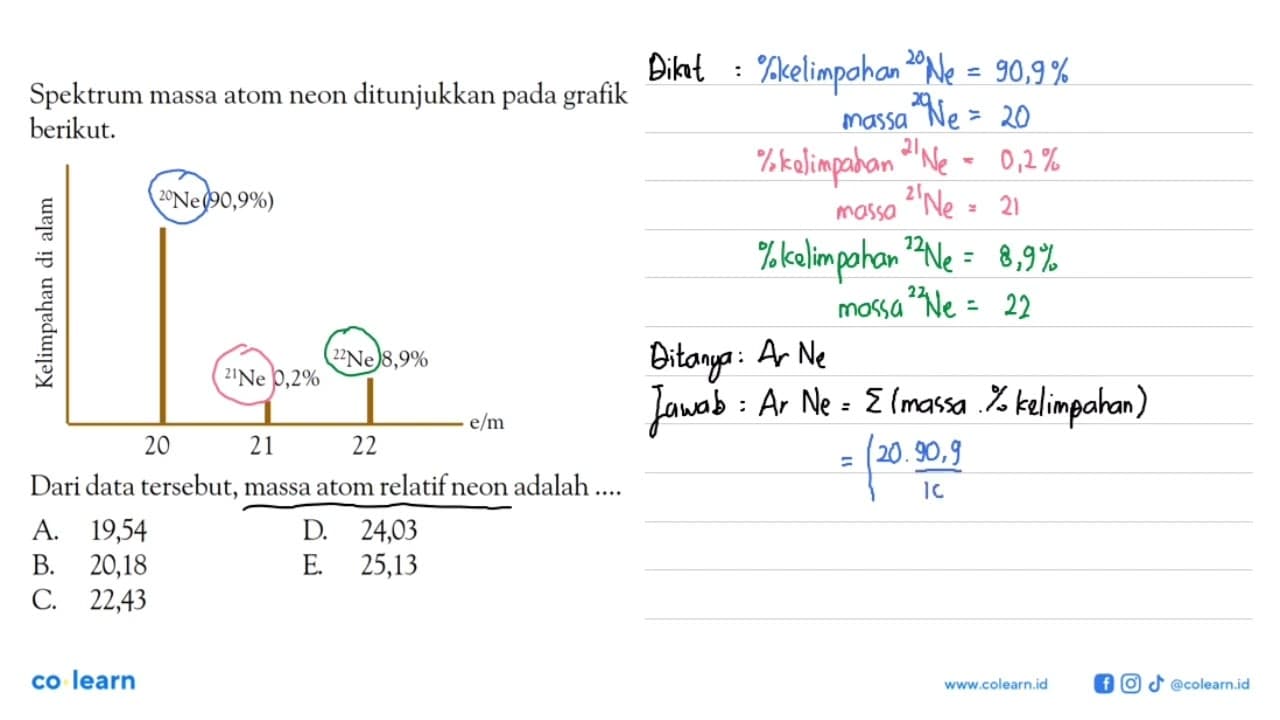 Spektrum massa atom neon ditunjukkan pada grafik
berikut.
Kelimpahan di alam
²⁰Ne(90,9%)
²¹Ne 0,2%
²²Ne 8,9%
e/m
20 21 22
Dari data tersebut, massa atom relatif neon adalah ....
A. 19,54 D. 24,03
B. 20,18 E. 25,13
C. 22,43
Dikat : %kelimpahan ²⁰Ne = 90,9%
massa ²⁰Ne = 20
%kelimpahan ²¹Ne = 0,2%
massa ²¹Ne = 21
%kelimpahan ²²Ne = 8,9%
massa ²²Ne = 22
Ditanya : Ar Ne
Jawab : Ar Ne = Σ (massa . % kelimpahan)
= (20 . 90,9
1c
co learn
www.colearn.id @colearn.id